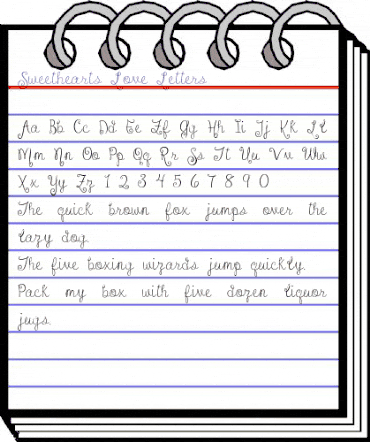 Sweethearts Love Letters
Aa Bb Cc Dd Ee Ff Gg Hh Ii Jj Kk Ll
Mm Nn Oo Pp Qq Rr Ss Tt Uu Vv Ww
Xx Yy Zz 1 2 3 4 5 6 7 8 9 0
The quick brown fox jumps over the
lazy dog.
The five boxing wizards jump quickly.
Pack my box with five dozen liquor
jugs.